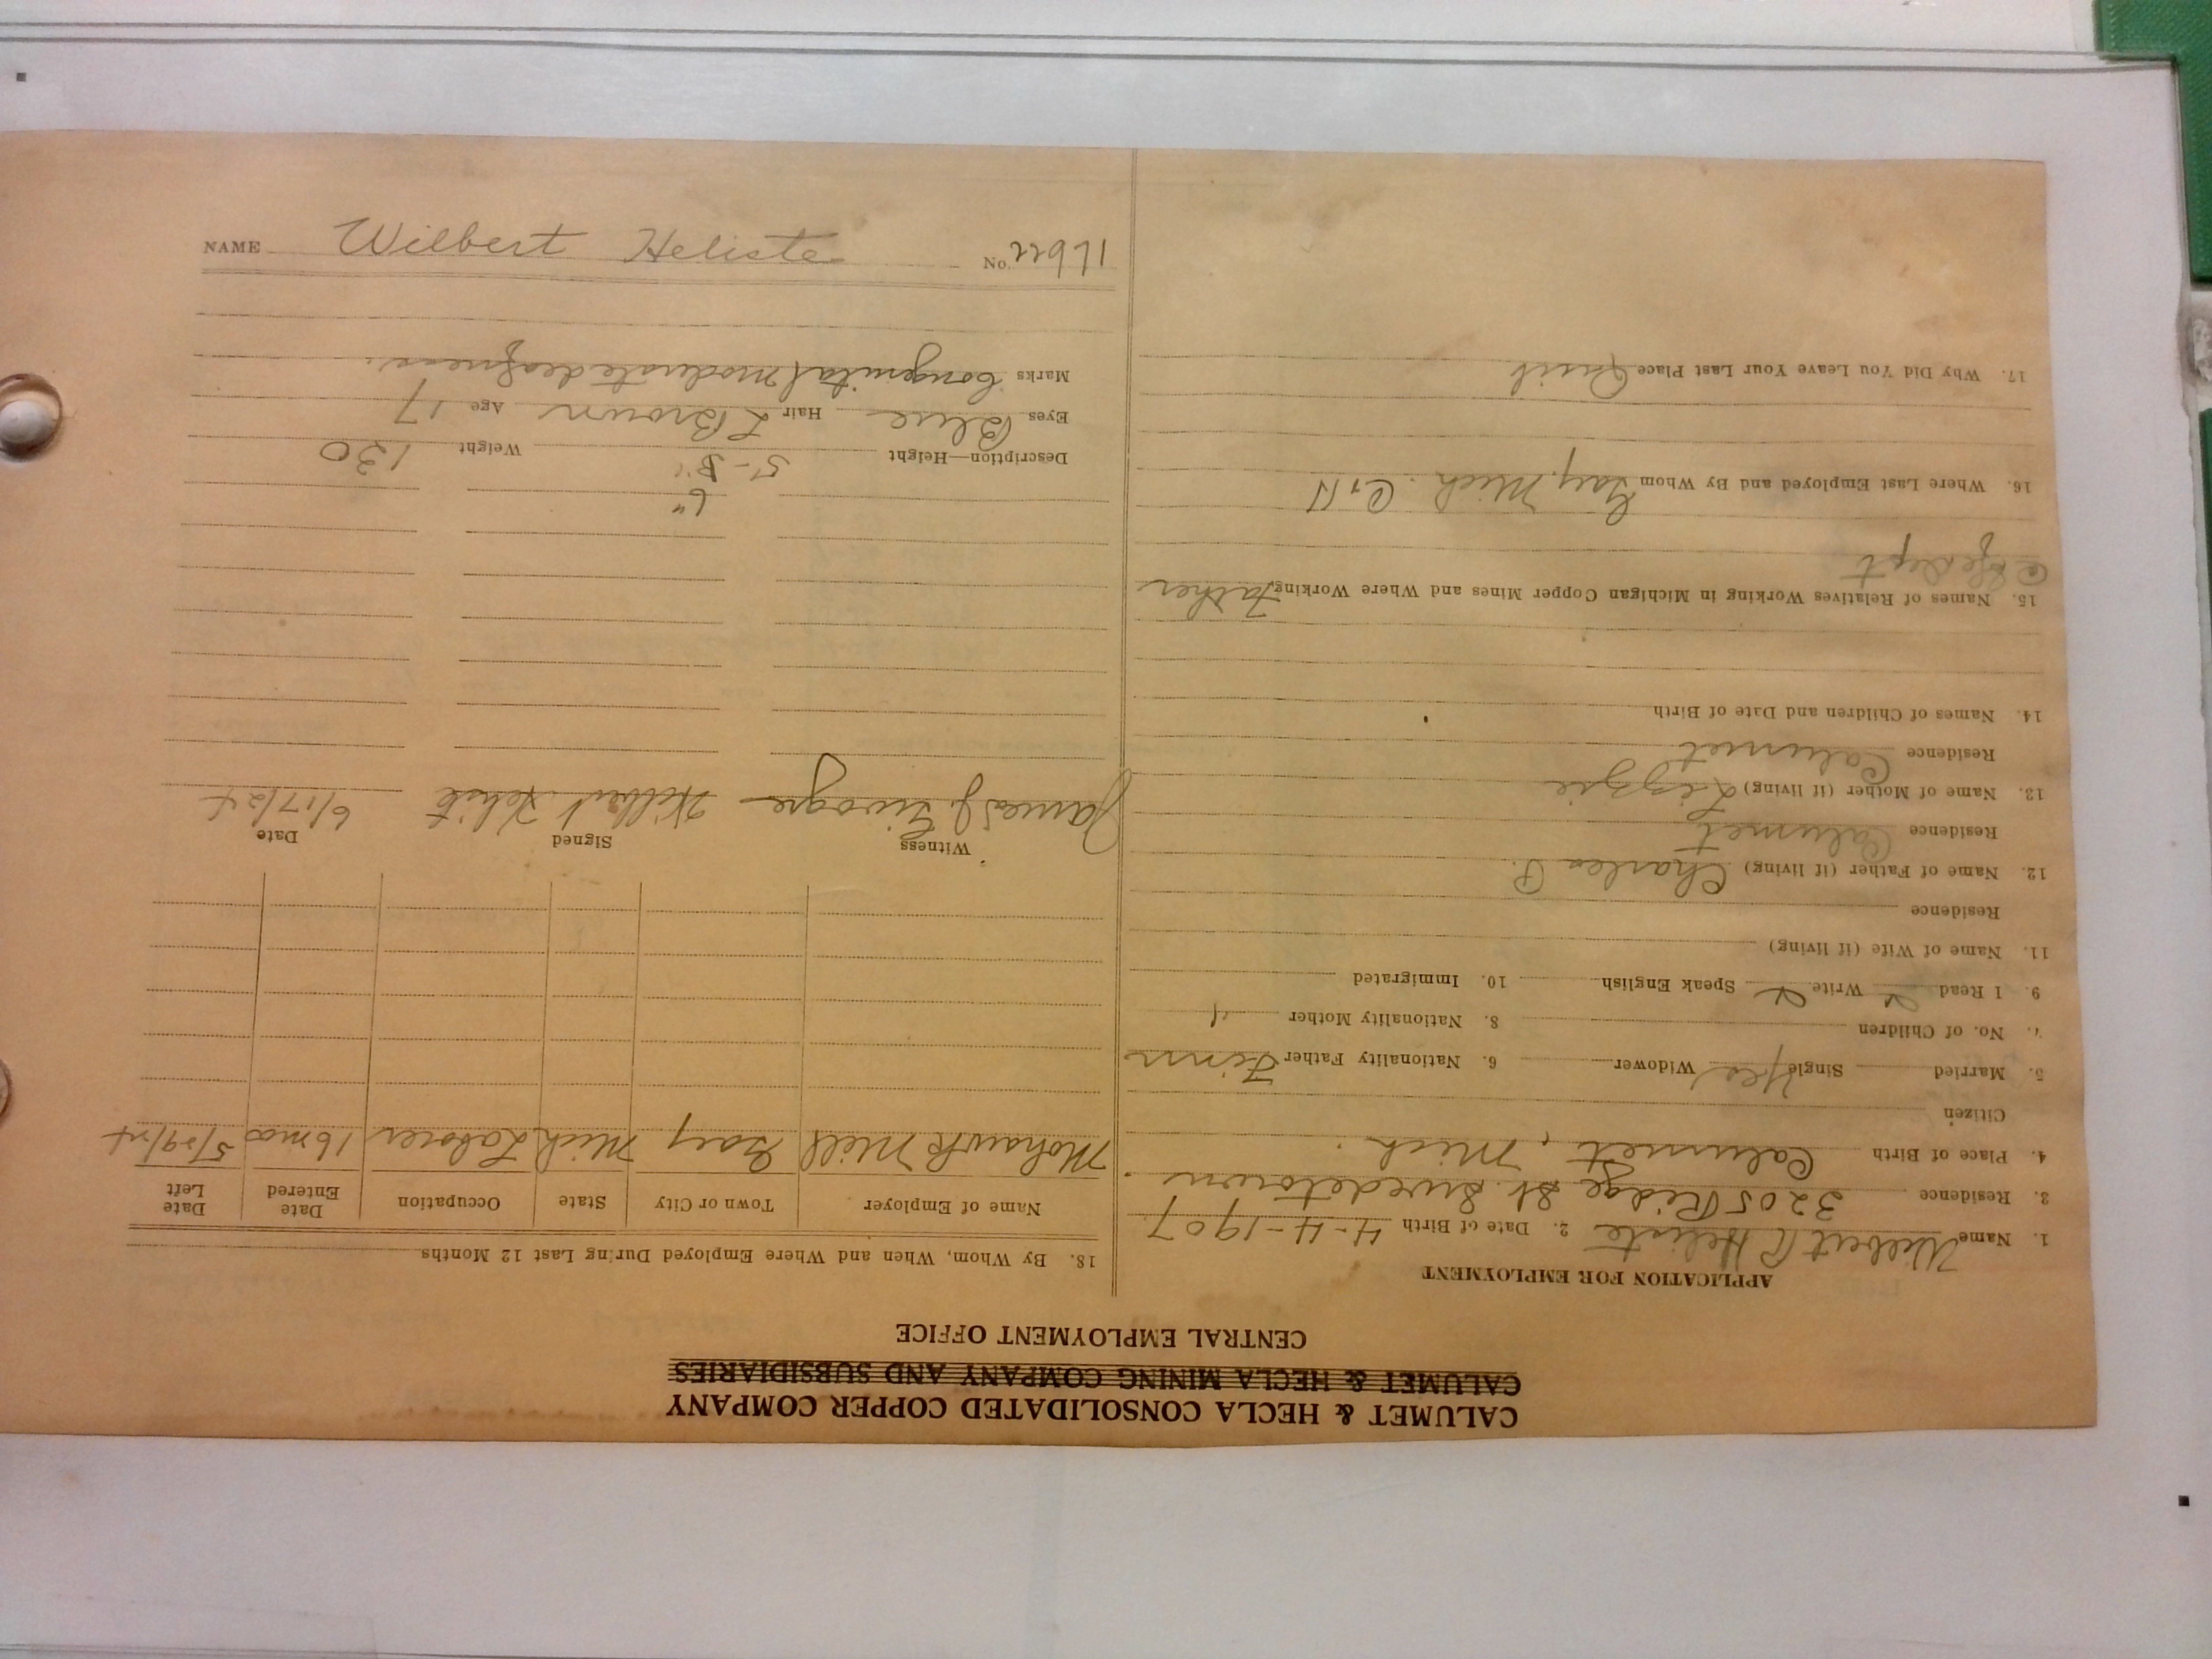 CALUMET & HECLA CONSOLIDATED COPPER COMPANY
CALUMET & HECLA MINING COMPANY AND SUBSIDIARIES
CENTRAL EMPLOYMENT OFFICE
APPLICATION FOR EMPLOYMENT
1. Name Wilbert R Heliste 2. Date of Birth 4-4-1907
3. Residence 3205 Ridge St. Swedetown.
4. Place of Birth Calumet, Mich.
Citizen
5. Married Single Yes Widower 6. Nationality Father Finn
7. No. of Children 8. Nationality Mother "
9. I Read Write Speak English 10. Immigrated
11. Name of Wife (if living)
Residence
12. Name of Father (if living) Charles P.
Residence Calumet
13. Name of Mother (if living) Lizzie
Residence Calumet
14. Names of Children and Date of Birth
15. Names of Relatives Working in Michigan Copper Mines and Where Working Father
dept
16. Where Last Employed and By Whom Gay, Mich.
17. Why Did You Leave Your Last Place Quit
18. By Whom, When and Where Employed During Last 12 Months
Name of Employer Town or City State Occupation Date Entered Date Left
Mohawk Mill Gay Mich Laborer 16 mo 5/29/24
Witness Signed Date
James J. Wilbert Heliste 6/17/24
6"
Description—Height 5'- Weight 130
Eyes Blue Hair L Brown Age 17
Marks Congenital moderate deafness.
NAME Wilbert Heliste No. 11622